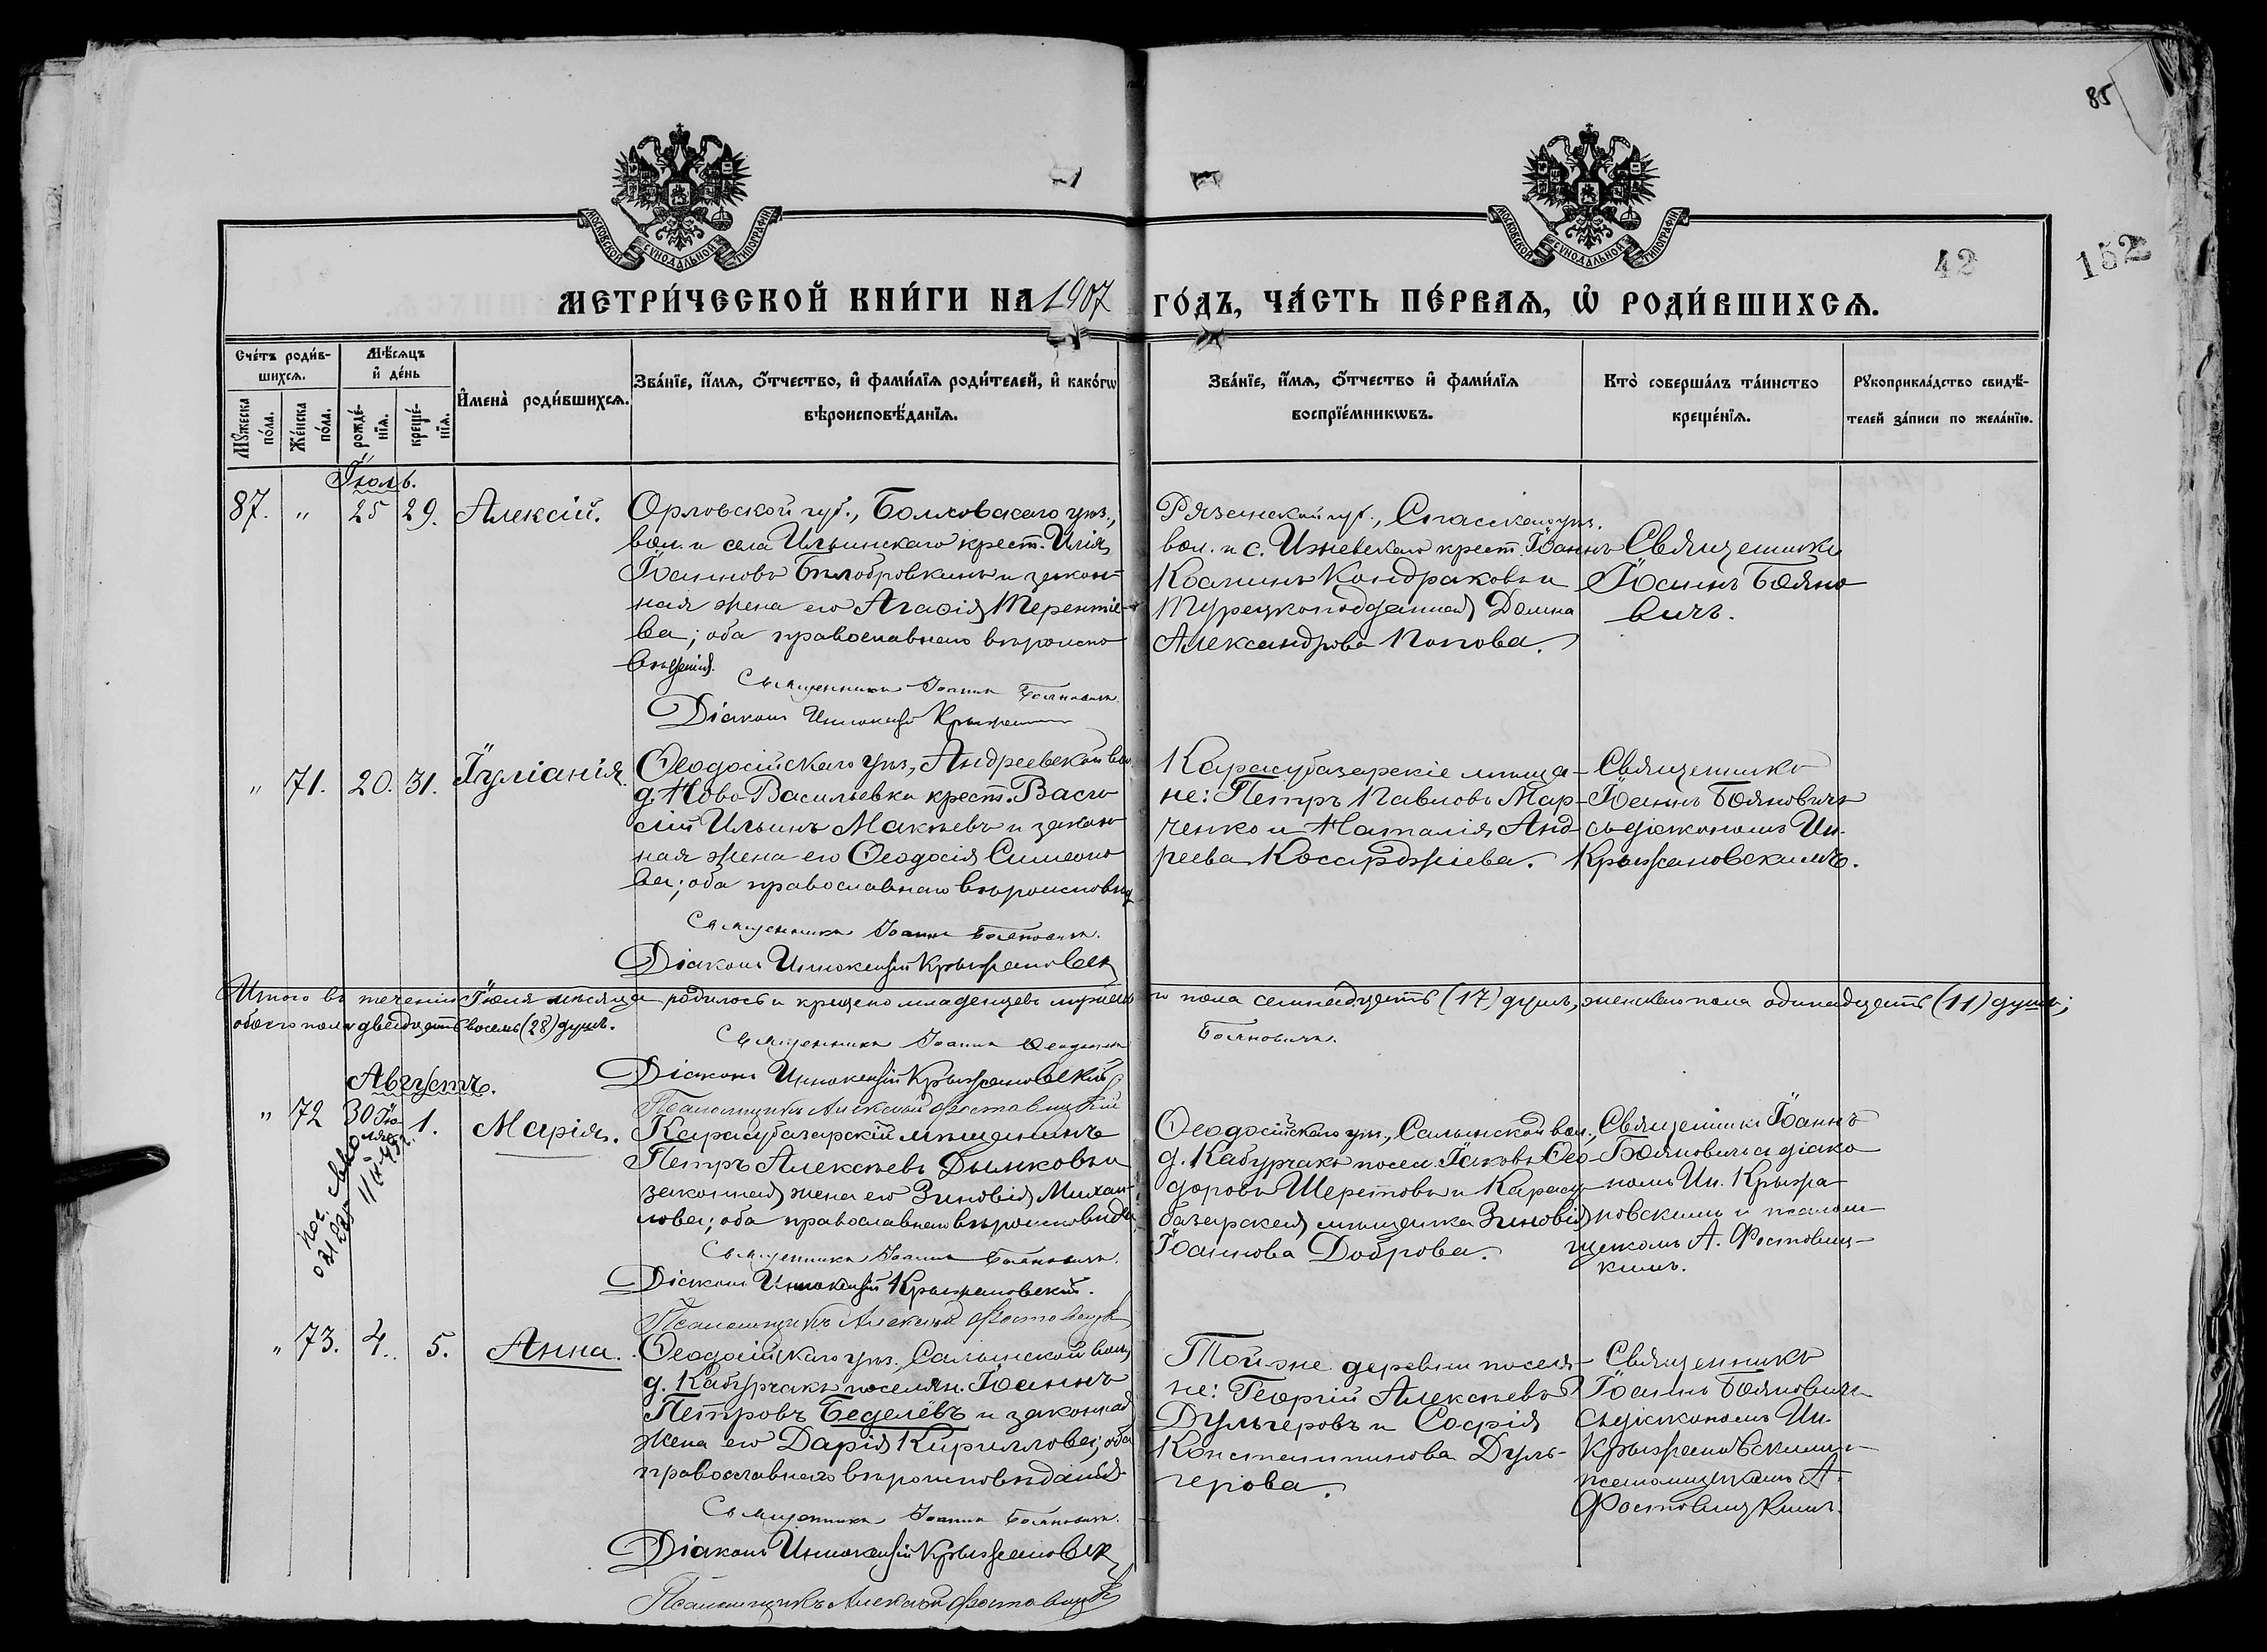 85
МОСКОВСКОЙ СѴНОДАЛЬНОЙ ТИПОГРАФІИ
МОСКОВСКОЙ СѴНОДАЛЬНОЙ ТИПОГРАФІИ
42
152
МЕТРИ́ЧЕСКОЙ КНИ́ГИ НА 1907
ГО́ДЪ, ЧА́СТЬ ПЕ́РВАѦ, Ѡ РОДИ́ВШИХСѦ.
Сче́тъ роди́в-
шихсѧ.
Мѣ́сѧцъ
и҆ де́нь
Мꙋ́жеска
по́ла.
Же́нска
по́ла.
рожде́-
нїѧ.
креще́-
нїѧ.
И҆мена̀ роди́вшихсѧ.
Зва́нїе, и҆́мѧ, ѻ҆́тчество, и҆ фами́лїѧ роди́телей, и҆ како́гѡ
вѣроисповѣ́данїѧ.
Зва́нїе, и҆́мѧ, ѻ҆́тчество и҆ фами́лїѧ
воспрїе́мникѡвъ.
Кто̀ соверша́лъ та́инство
креще́нїѧ.
Рꙋкоприкла́дство свидѣ́-
телей за́писи по жела́нїю.
Іюль.
87. " 25 29. Алексій.
Орловской губ., Болховскаго уѣз.,
вол. и села Ильинскаго крест. Илія
Іоанновъ Бѣлобровкинъ и закон-
ная жена его Агаѳія Терентіе-
ва; оба православнаго вѣроиспо
вѣданія.
Священникъ Іоаннъ Бояновичъ
Діаконъ Иннокентій
Рязанской губ., Спасскаго уѣз.
вол. и с. Ижевскаго крест. Іоаннъ
Кондраковъ и
Турецкоподданная Домна
Александрова Попова.
Священникъ
Іоаннъ Бояно
вичъ.
" 71. 20. 31. Іуліанія.
Ѳеодосійскаго уѣз., Андреевской вол.
д. Ново-Васильевки крест. Васи
лій Ильинъ Макѣевъ и закон
ная жена его Ѳеодосія Симеоно
ва; оба православнаго вѣроисповѣд
Священникъ Іоаннъ Бояновичъ.
Діаконъ Иннокентій Крыжановск
Карасубазарскіе мѣща-
не: Петръ Павловъ Мар-
ченко и Наталія Анд
реева
Священникъ
Іоаннъ Бояновичъ
съ діакономъ Ин.
Крыжановскимъ.
Итого въ теченіи Іюля мѣсяца родилось и крещено младенцевъ мужеска
го пола семнадцать (17) душъ, женскаго пола одинадцать (11) душъ;
обоего пола двадцать восемь (28) душъ.
Священникъ Іоаннъ
Бояновичъ.
Діаконъ Иннокентій Крыжановскій
Псаломщикъ Алексѣй Фостовицкій
Августъ.
" 72 30 Ію
ля 1. Марія.
Карасубазарскій мѣщанинъ
Петръ Алексѣевъ Дымковъ и
законная жена его Зиновія Михаи-
лова; оба православнаго вѣроисповѣда
Священникъ Іоаннъ Бояновичъ.
Діаконъ Иннокентій Крыжановскій.
Псаломщикъ Алексѣй Фостовицк
Ѳеодосійскаго уѣз., Салынской вол.,
д. Кабурчакъ посел. Іаковъ Ѳео-
доровъ Шереметовъ и Карасу
базарская мѣщанка Зиновія
Іоаннова Доброва.
Священникъ Іоаннъ
Бояновичъ съ діако
номъ Ин. Крыжа-
новскимъ и псалом-
щикомъ А. Фостовиц-
кимъ.
" 73. 4. 5. Анна.
Ѳеодосійскаго уѣз. Салынской вол.,
д. Кабурчакъ поселян. Іоаннъ
Петровъ Беделёвъ и законная
жена его Дарія Кириллова; оба
православнаго вѣроисповѣданія
Священникъ Іоаннъ Бояновичъ.
Діаконъ Иннокентій Крыжановск
Псаломщикъ Алексѣй Фостовицк
Той-же деревни поселя-
не: Георгій Алексѣевъ
Дульгеровъ и Софія
Константинова Дуль-
герова.
Священникъ
Іоаннъ Бояновичъ
съ діакономъ Ин.
Крыжановскимъ и
псаломщикомъ А.
Фостовицкимъ.